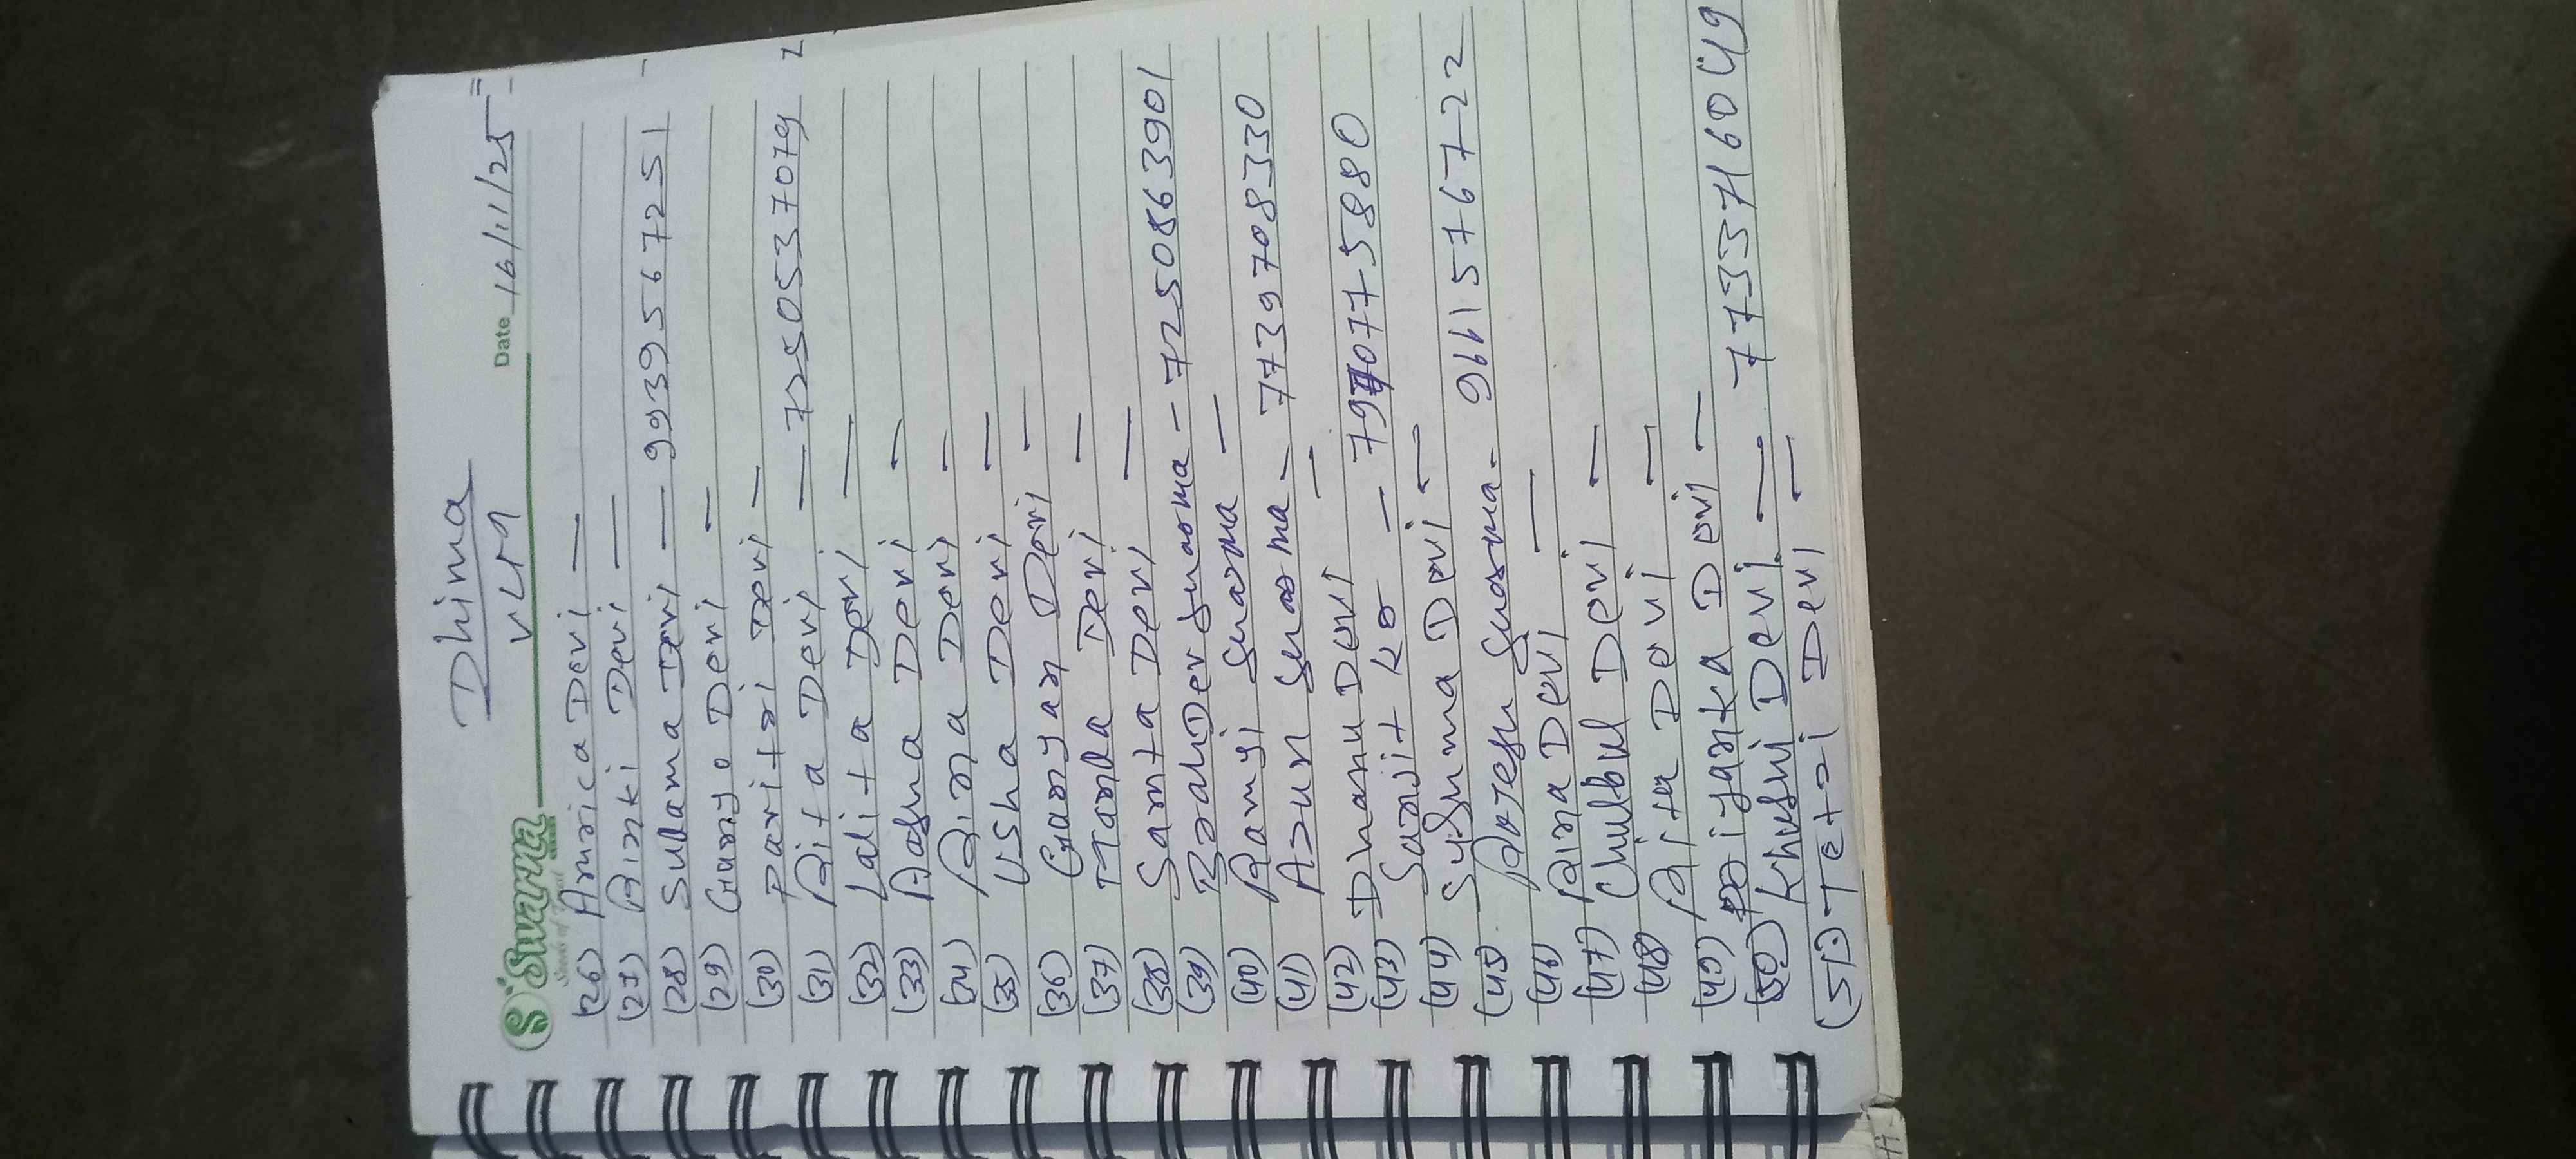 Dhima
VLA
Swarna
Date 16/11/25
(26) Amrica Devi —
(27) Rinki Devi —
(28) Subama Devi — 9939567251
(29) Gunjo Devi —
(30) Pavitri Devi —
(31) Rita Devi — 7250537079
(32) Lalita Devi —
(33) Aasha Devi —
(34) Rina Devi —
(35) Usha Devi —
(36) Gunjan Devi —
(37) Devi —
(38) Santa Devi —
(39) Sharma - 7250863901
(40) Ramji Sharma —
(41) Arun Sharma - 7739708330
(42) Dhanu Devi —
(43) Sanjit Kr — 7077-5880
(44) Sushma Devi —
(45) Sharma - 9661576722
(46) Rina Devi —
(47) Chulbul Devi —
(48) Rita Devi —
(49) Priyanka Devi —
(50) Khushi Devi —
(51) Tetri Devi —